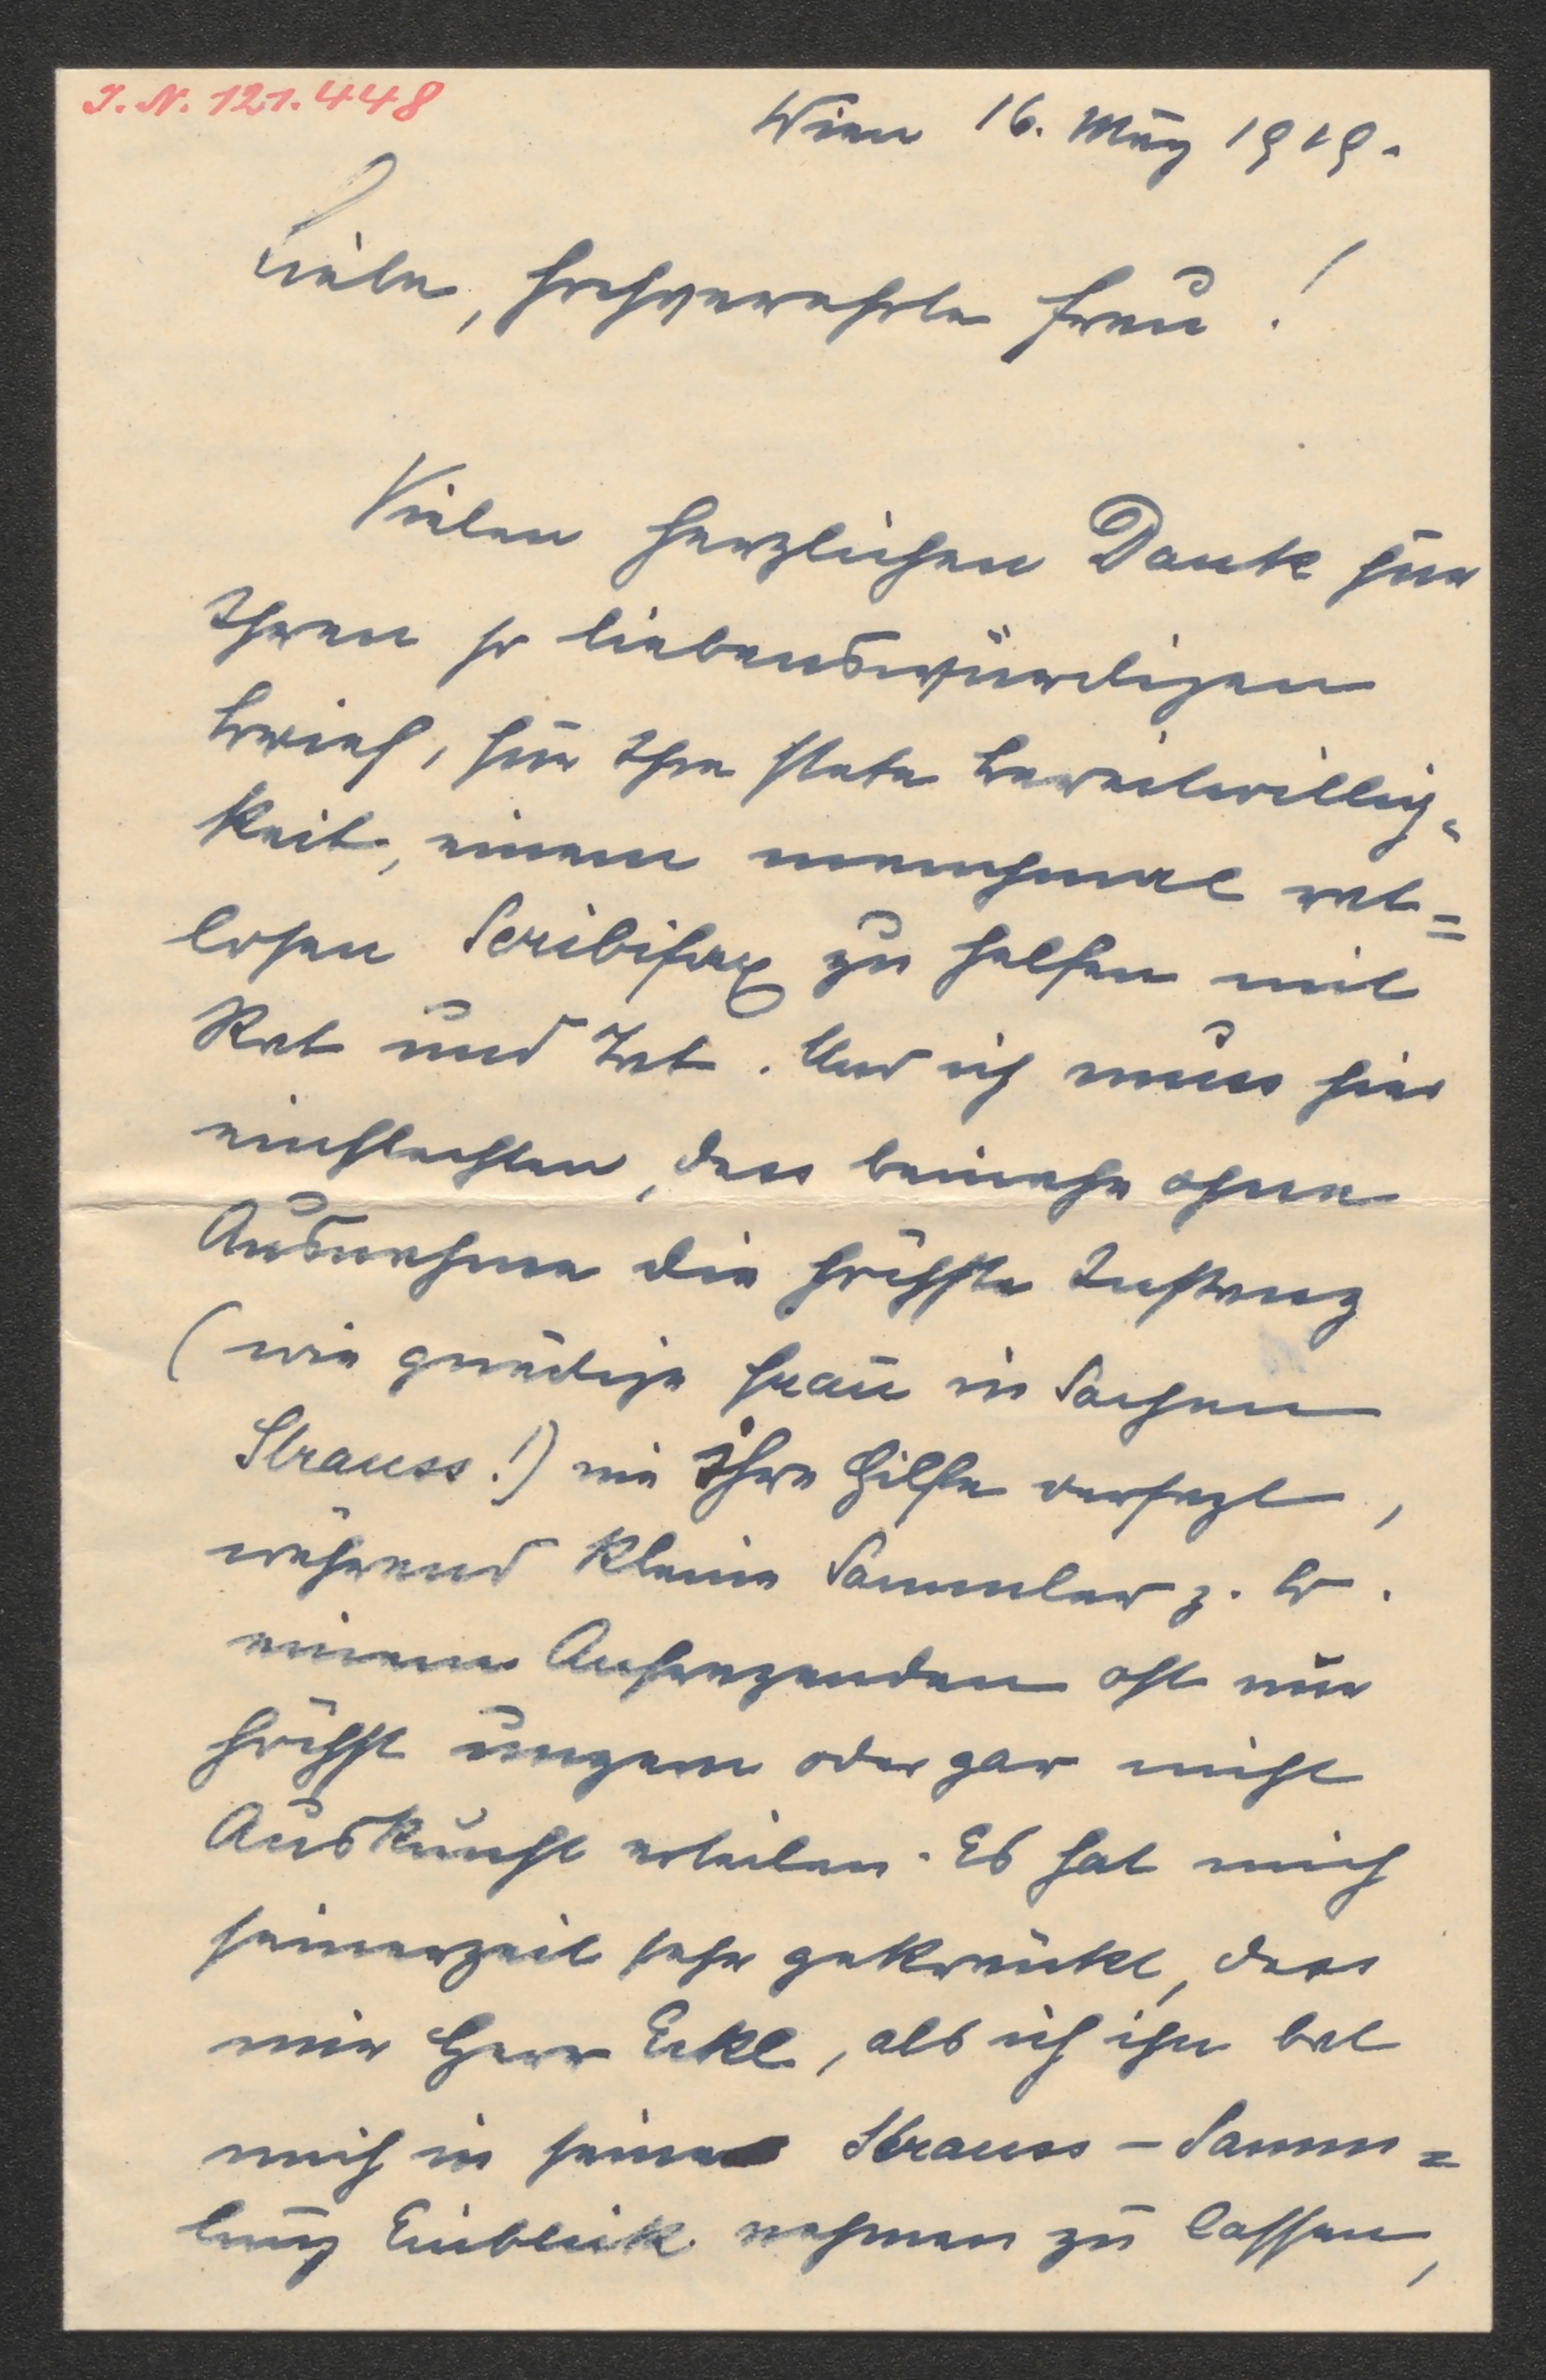 I. N. 121.448
Wien 16. März 1919.
Liebe, hochverehrte Frau!
Vielen herzlichen Dank für
Ihren so liebenswürdigen
Brief, für Ihre stete Bereitwillig-
keit, einem manchmal rat=
losen Scribifax zu helfen mit
Rat und Tat. Und ich muss hier
einflechten, dass beinahe ohne
Ausnahme die höchste Instanz
(wie gnädige Frau in Sachen
Strauss!) nie Ihre Hilfe versagt,
während kleine Sammler z. B.
einem Anfragenden oft nur
höchst ungern oder gar nicht
Auskunft erteilen. Es hat mich
seinerzeit sehr gekränkt, dass
mir Herr Eckl, als ich ihn bat
mich in seine Strauss-Samm=
lung Einblick nehmen zu lassen,